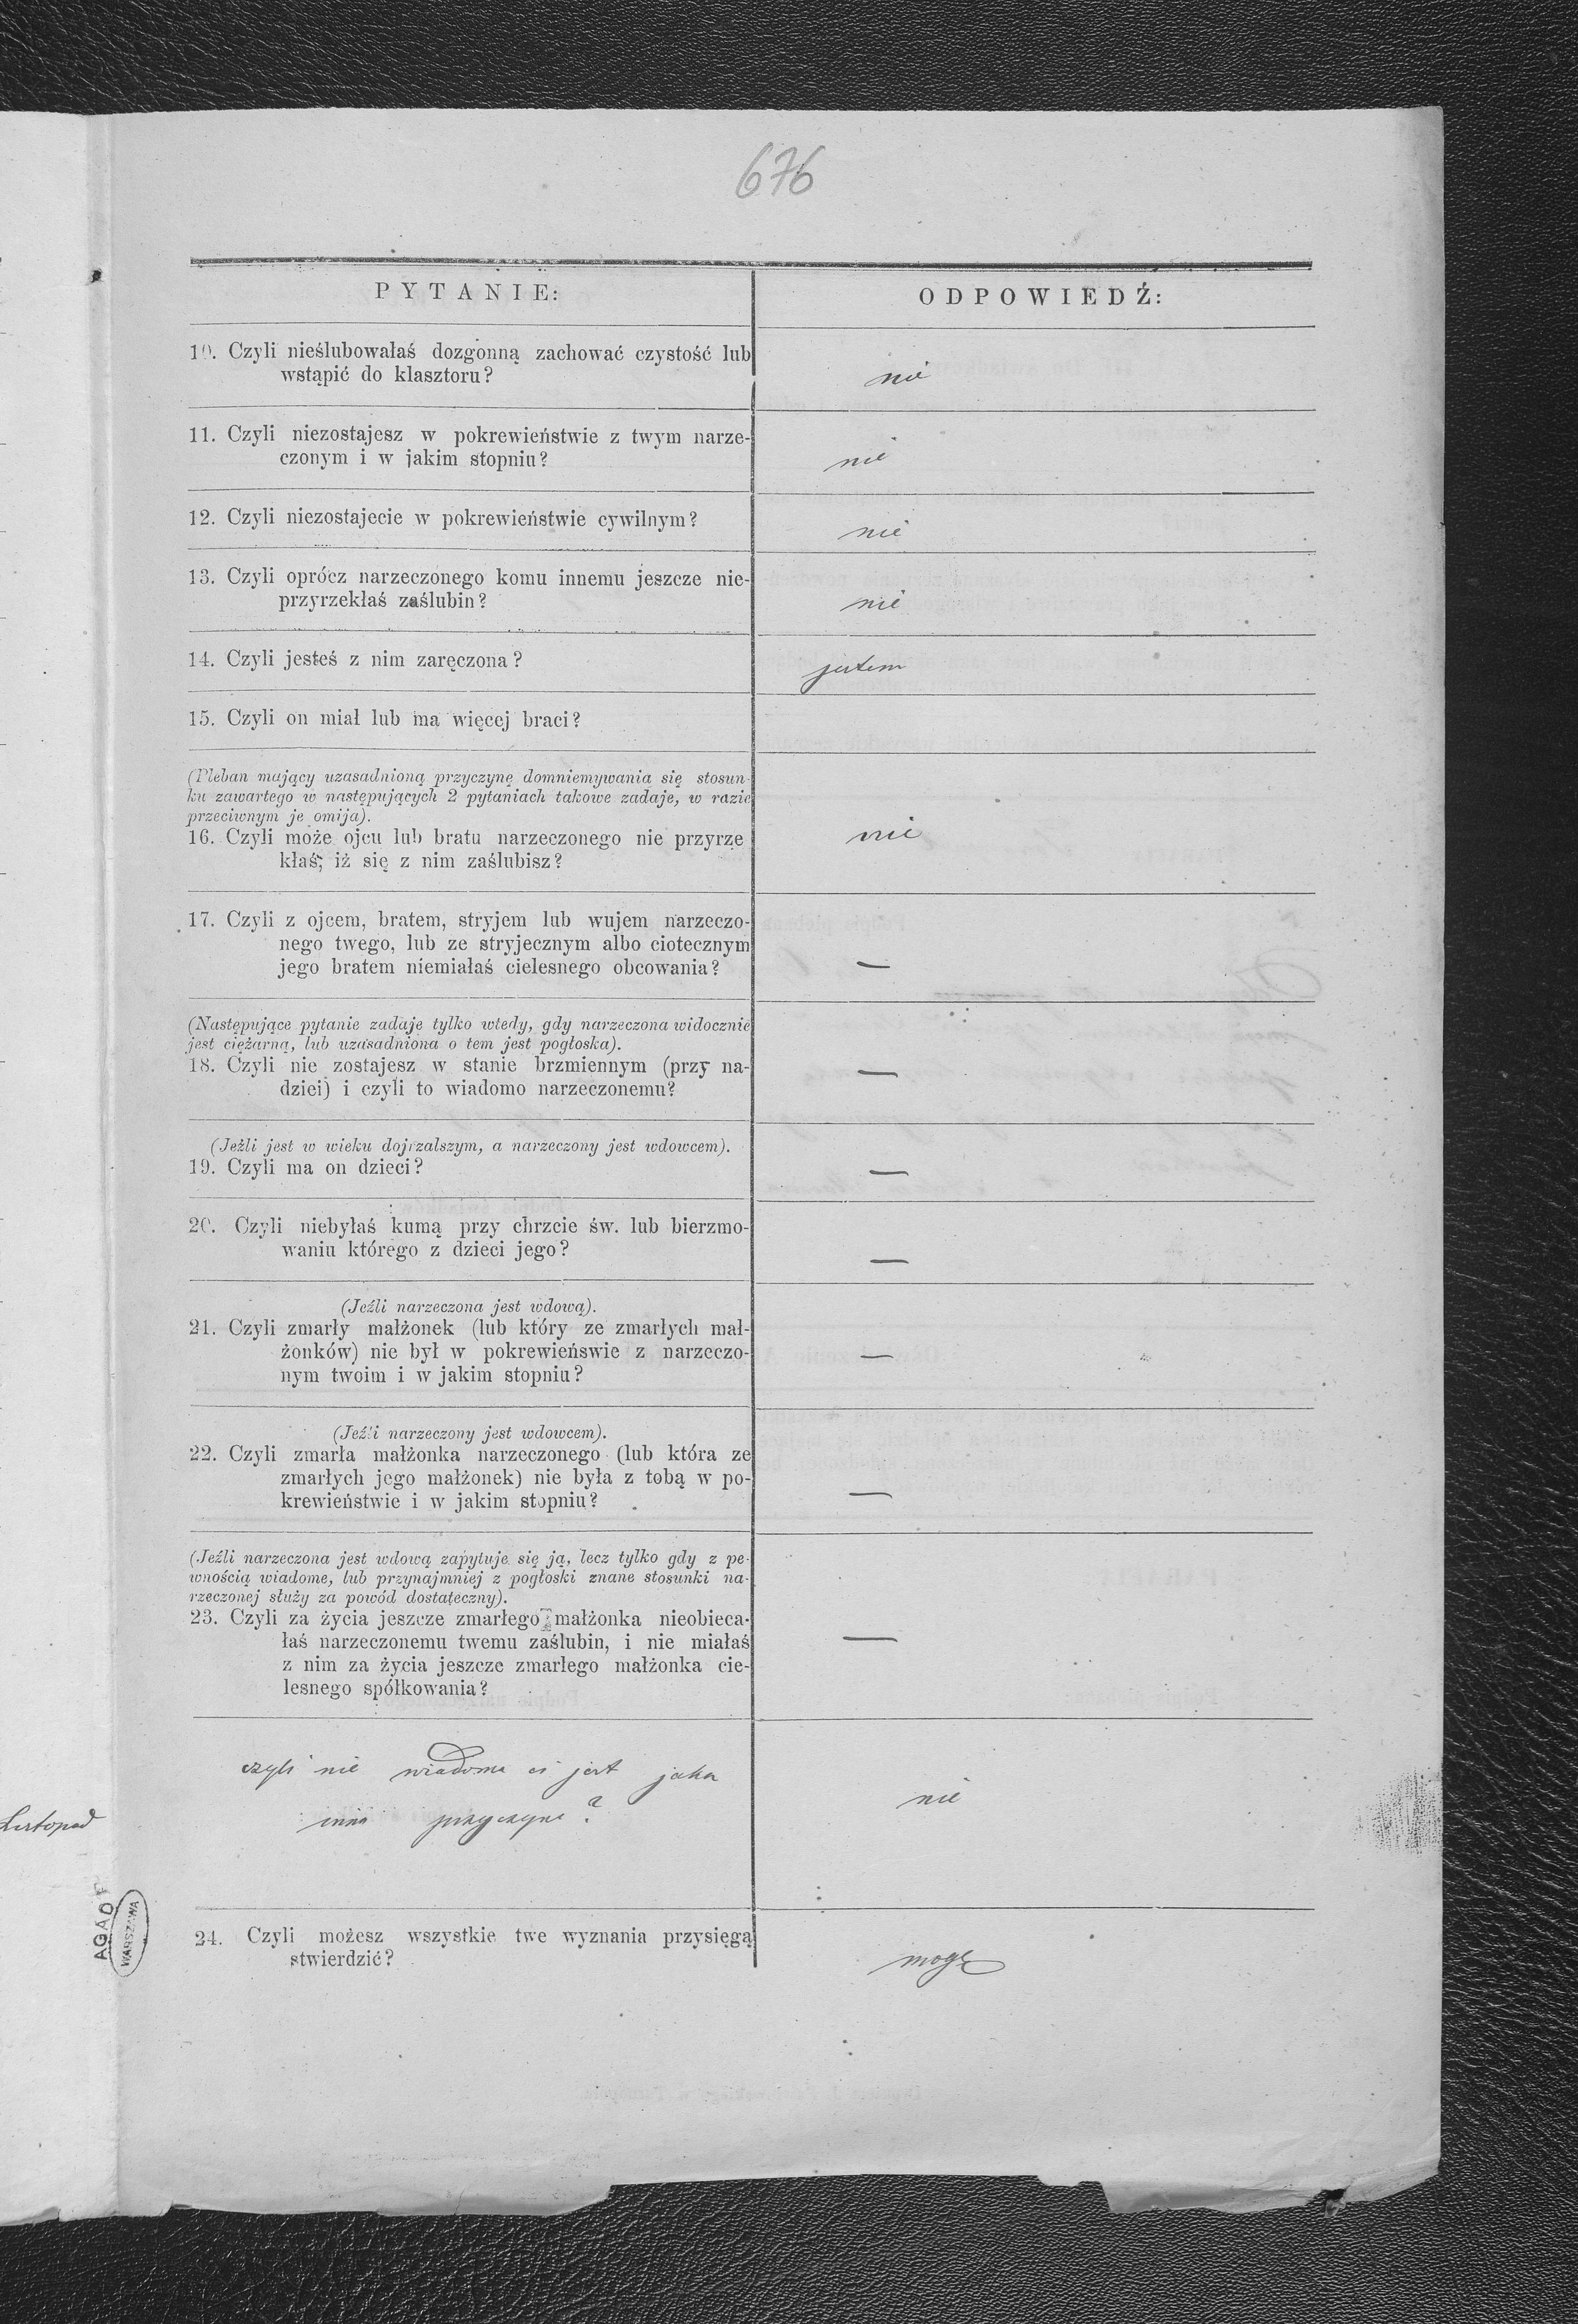 676
PYTANIE:
ODPOWIEDŹ:
10. Czyli nieślubowałaś dozgonną zachować czystość lub
wstąpić do klasztoru?
nie
11. Czyli niezostajesz w pokrewieństwie z twym narze-
czonym i w jakim stopniu?
nie
12. Czyli niezostajecie w pokrewieństwie cywilnym?
nie
13. Czyli oprócz narzeczonego komu innemu jeszcze nie-
przyrzekłaś zaślubin?
nie
14. Czyli jesteś z nim zaręczona?
jestem
15. Czyli on miał lub ma więcej braci?
(Pleban mający uzasadnioną przyczynę domniemywania się stosun-
ku zawartego w następujących 2 pytaniach takowe zadaje, w razie
przeciwnym je omija).
16. Czyli może ojcu lub bratu narzeczonego nie przyrze
kłaś, iż się z nim zaślubisz?
nie
17. Czyli z ojcem, bratem, stryjem lub wujem narzeczo-
nego twego, lub ze stryjecznym albo ciotecznym
jego bratem niemiałaś cielesnego obcowania?
—
(Następujące pytanie zadaje tylko wtedy, gdy narzeczona widocznie
jest ciężarną, lub uzasadniona o tem jest pogłoska).
18. Czyli nie zostajesz w stanie brzmiennym (przy na-
dziei) i czyli to wiadomo narzeczonemu?
—
(Jeżli jest w wieku dojrzalszym, a narzeczony jest wdowcem).
19. Czyli ma on dzieci?
—
20. Czyli niebyłaś kumą przy chrzcie św. lub bierzmo-
waniu którego z dzieci jego?
—
(Jeźli narzeczona jest wdową).
21. Czyli zmarły małżonek (lub który ze zmarłych mał-
żonków) nie był w pokrewieńswie z narzeczo-
nym twoim i w jakim stopniu?
—
(Jeźli narzeczony jest wdowcem).
22. Czyli zmarła małżonka narzeczonego (lub która ze
zmarłych jego małżonek) nie była z tobą w po-
krewieństwie i w jakim stopniu?
—
(Jeźli narzeczona jest wdową zapytuje się ją, lecz tylko gdy z pe-
wnością wiadome, lub przynajmniej z pogłoski znane stosunki na-
rzeczonej służy za powód dostateczny).
23. Czyli za życia jeszcze zmarłego małżonka nieobieca-
łaś narzeczonemu twemu zaślubin, i nie miałaś
z nim za życia jeszcze zmarłego małżonka cie-
lesnego spółkowania?
—
czyli nie wiadoma ci jest jaka
inna przyczyna?
nie
Listopad
AGAD
WARSZAWA
24. Czyli możesz wszystkie twe wyznania przysięgą
stwierdzić?
mogę